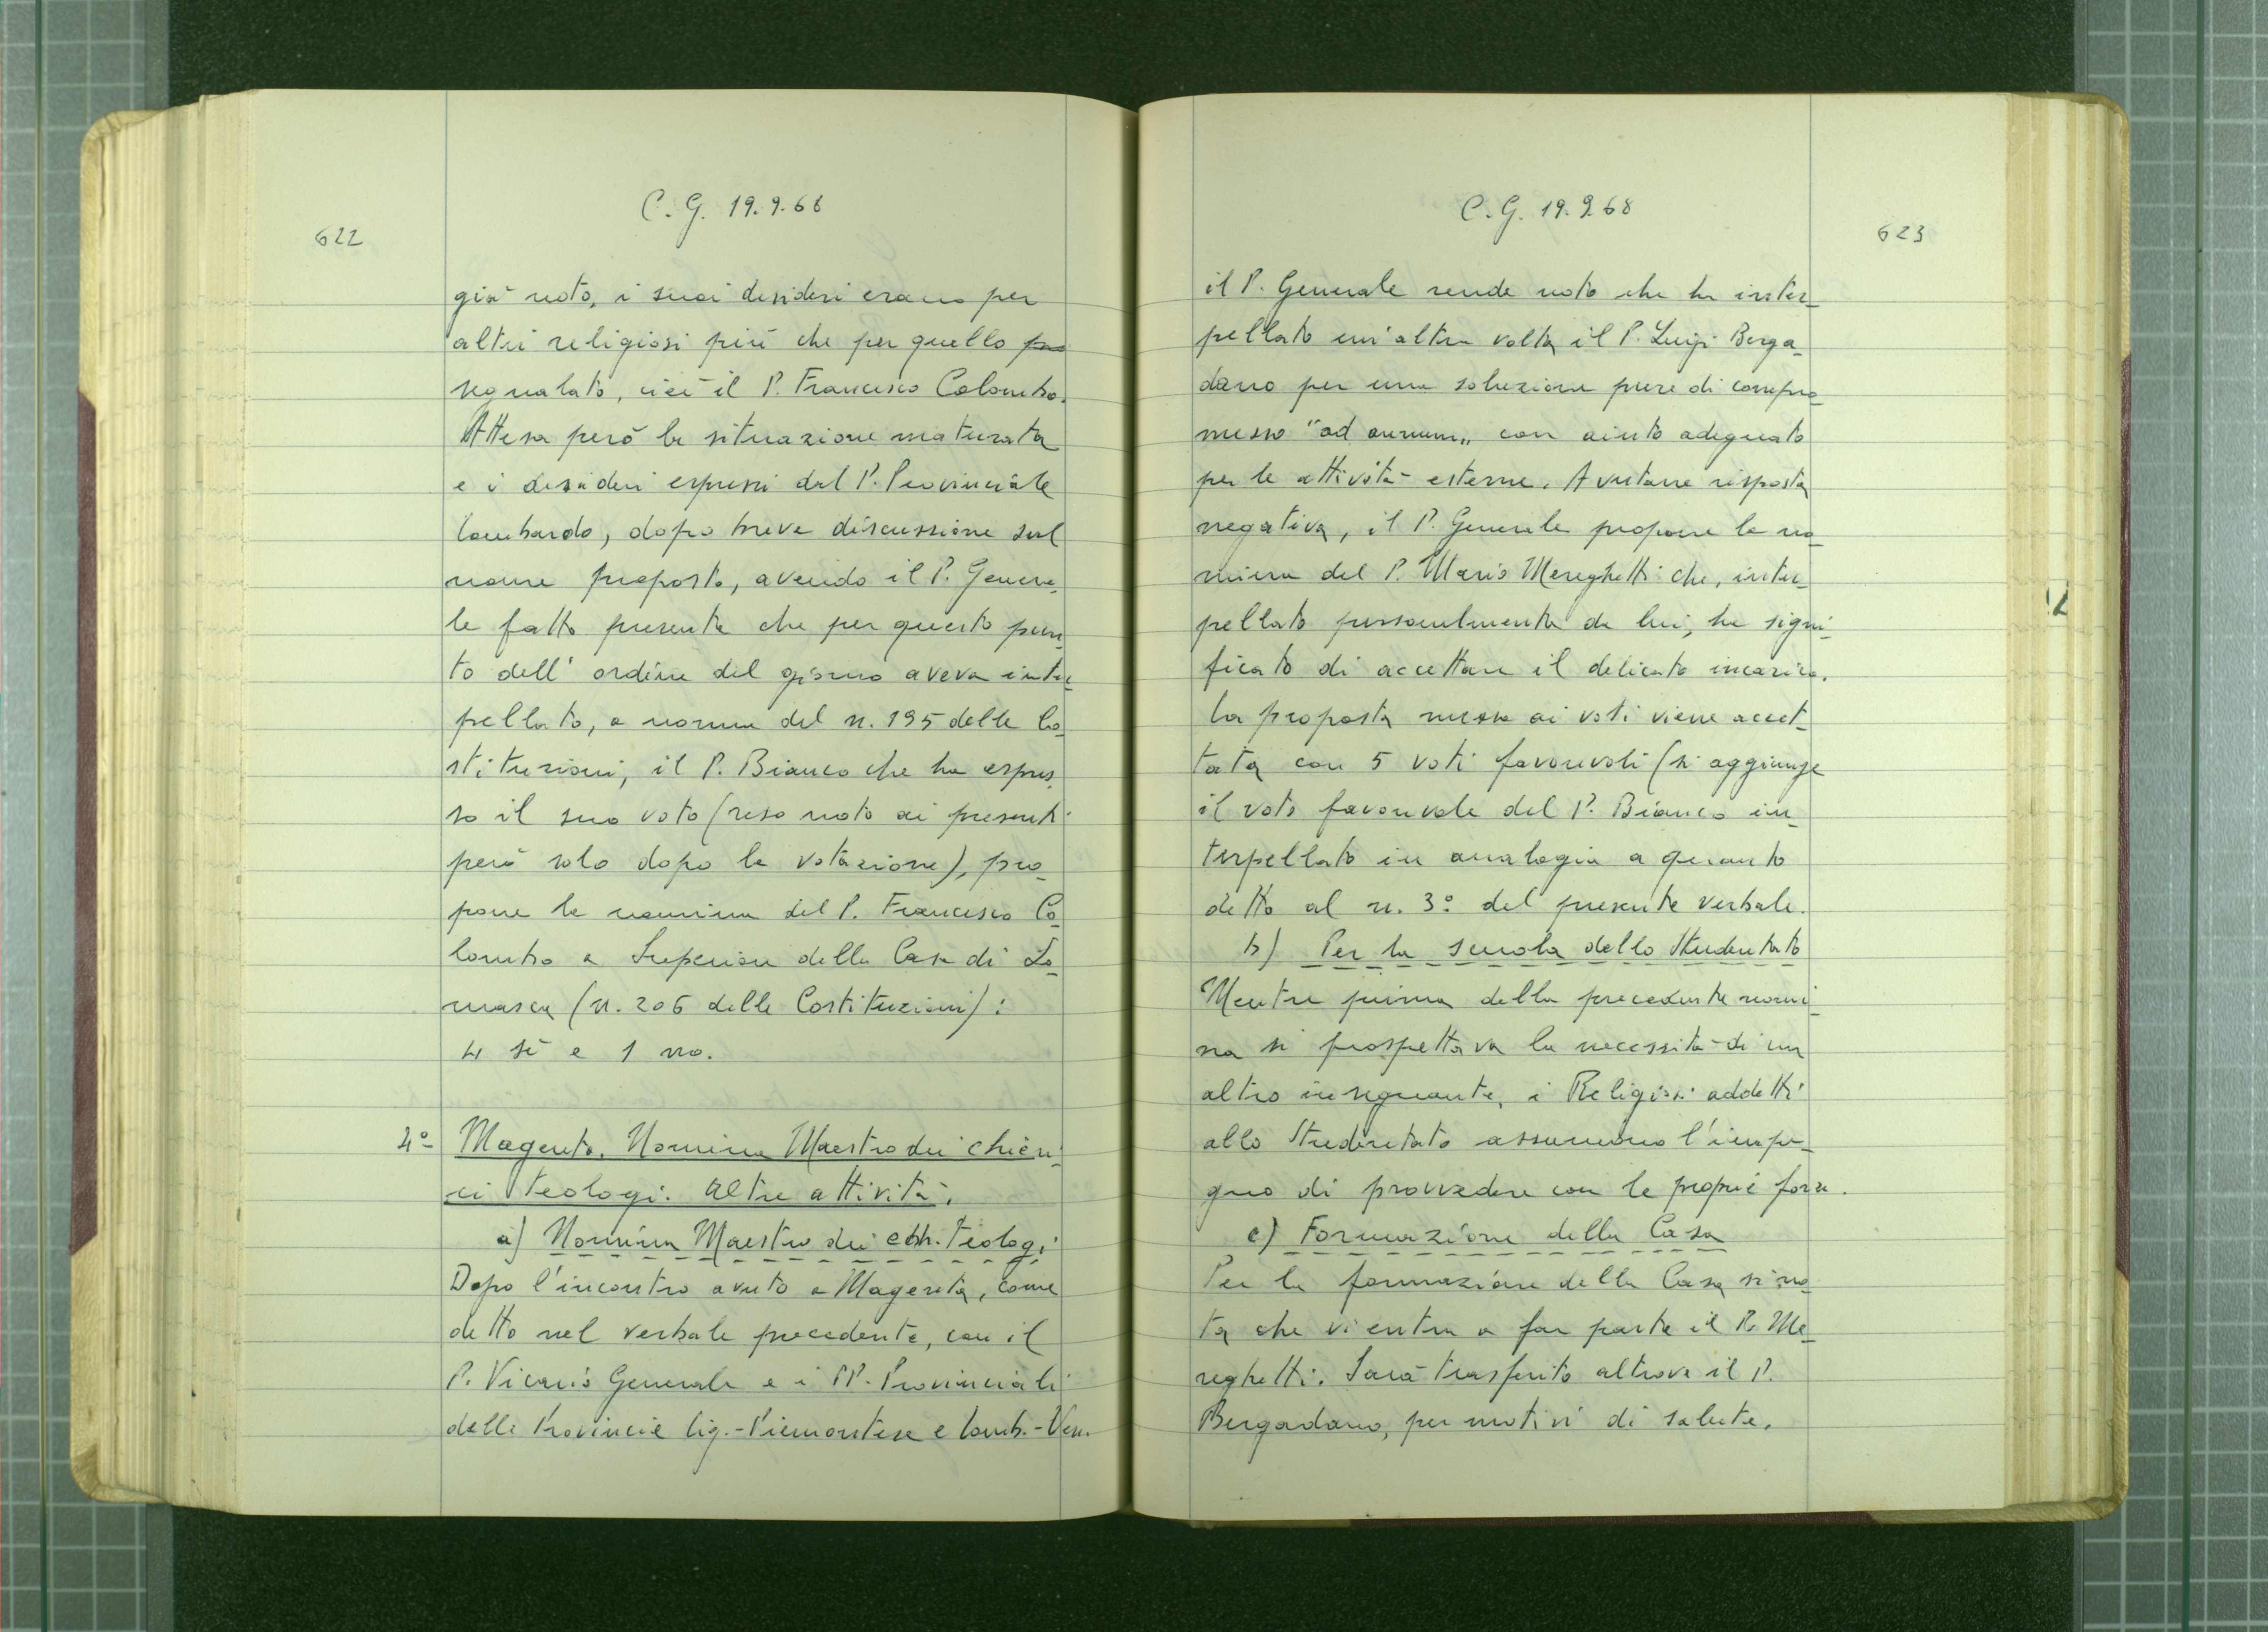 C. G. 19.9.68
622
già noto, i suoi desideri erano per
altri religiosi più che per quello pro
segnalato, cioè il P. Francesco Colombo.
Attesa però la situazione maturata
e i desideri espressi dal P. Provinciale
lombardo, dopo breve discussione sul
nome proposto, avendo il P. Genera-
le fatto presente che per questo pun-
to dell' ordine del giorno aveva inter-
pellato, a norma del n. 195 delle Co-
stituzioni, il P. Bianco che ha espres-
so il suo voto (reso noto ai presenti
però solo dopo la votazione), pro-
pone la nomina del P. Francesco Co-
lombo a Superiore della Casa di So-
masca (n. 206 delle Costituzioni):
4 sì e 1 no.
4° Magenta. Nomina Maestro dei chieri-
ci teologi. Altre attività.
a) Nomina Maestro dei chh. teologi
Dopo l'incontro avuto a Magenta, come
detto nel verbale precedente, con il
P. Vicario Generale e i PP. Provinciali
delle Provincie Lig.-Piemontese e Lomb.-Ven.
C. G. 19.9.68
623
il P. Generale rende noto che ha inter-
pellato un'altra volta il P. Luigi Berga-
dano per una soluzione pure di compro-
messo "ad annum" con aiuto adeguato
per le attività esterne. Avutane risposta
negativa, il P. Generale propone la no-
mina del P. Mario Mereghetti che, inter-
pellato personalmente da lui, ha signi-
ficato di accettare il delicato incarico.
La proposta messa ai voti viene accet-
tata con 5 voti favorevoli (si aggiunge
il voto favorevole del P. Bianco in-
terpellato in analogia a quanto
detto al n. 3° del presente verbale.
b) Per la scuola dello Studentato
Mentre prima della precedente nomi-
na si prospettava la necessità di un
altro insegnante, i Religiosi addetti
allo Studentato assumono l'impe-
gno di provvedere con le proprie forze.
c) Formazione della Casa
Per la formazione della Casa si no-
ta che vi entra a far parte il P. Me-
reghetti. Sarà trasferito altrove il P.
Bergadano, per motivi di salute.